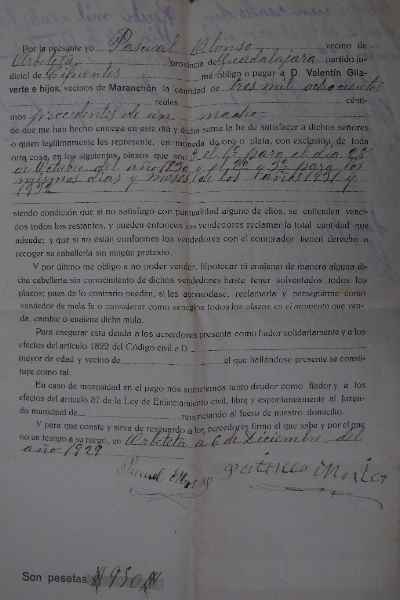 Por la presente yo Pascual Alonso vecino de
Arbeteta provincia de Guadalajara partido ju-
dicial de Cifuentes me obligo a pagar a D. Valentín Gila-
verte e hijos, vecinos de Maranchón la cantidad de tres mil ochocientos
reales cénti-
mos procedentes de un macho
de que me han hecho entrega en este día y dicha suma le he de satisfacer a dichos señores
o quien legítimamente les represente, en moneda de oro o plata, con exclusión, de toda
otra cosa, en los siguientes, plazos que son 3 el 1º para el día 28
de Octubre del año 1930 y el 2º y 3º para los
mismos días y meses de los años 1931 y
1932
siendo condición que si no satisfago con puntualidad alguno de ellos, se entiendan venci-
dos todos los restantes, y pueden entonces los vendedores reclamar la total cantidad que
adeude; y que si no están conformes los vendedores con el comprador tienen derecho a
recoger su caballería sin ningún pretexto.
Y por último me obligo a no poder vender, hipotecar ni enajenar de manera alguna di-
cha caballería sin conocimiento de dichos vendedores hasta tener solventados todos los
plazos; pues de lo contrario pueden, si les acomodase, reclamarla y perseguirme como
vendedor de mala fe o considerar como vencidos todos los plazos en el momento que ven-
da, cambie o enajene dicha mula.
Para asegurar esta deuda a los acreedores presento como fiador solidariamente y a los
efectos del artículo 1822 del Código civil a D.
mayor de edad y vecino de el que hallándose presente se consti-
tuye como tal.
En caso de morosidad en el pago nos sometemos tanto deudor como fiador y a los
efectos del artículo 57 de la Ley de Enjuiciamiento civil, libre y espontáneamente al Juzga-
do municipal de renunciando al fuero de nuestro domicilio.
Y para que conste y sirva de resguardo a los acreedores firmo el que sabe y por el que
no un testigo a su ruego, en Arbeteta a 6 de Diciembre del
año 1929
Son pesetas #950#